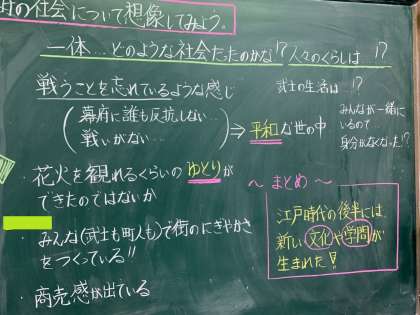 時の社会について想像してみよう。
一体…どのような社会だったのかな!? 人々のくらしは…!?
戦うことを忘れているような感じ
(幕府に誰も反抗しない…
戦いがない…)
⇒平和な世の中
武士の生活は…!?
みんなが一緒に
いるので
身分がなくなった!?
・花火を観れるくらいのゆとりが
できたのではないか
・みんな(武士も町人も)で街のにぎやかさ
をつくっている!!
・商売感が出ている
～まとめ～
江戸時代の後半には
新しい文化や学問が
生まれた!